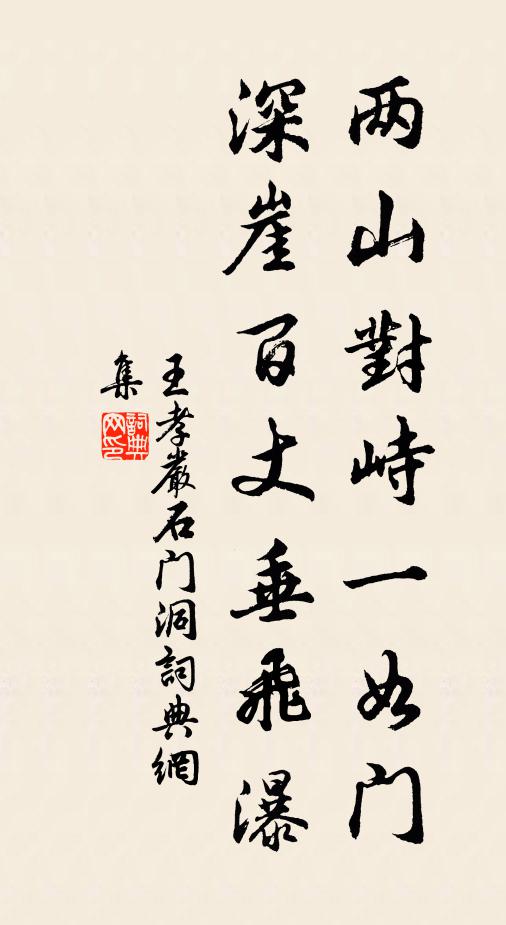 两山對峙一如门
深崖百丈垂飛瀑
王孝嚴石门洞詞典網
集
詞典网印